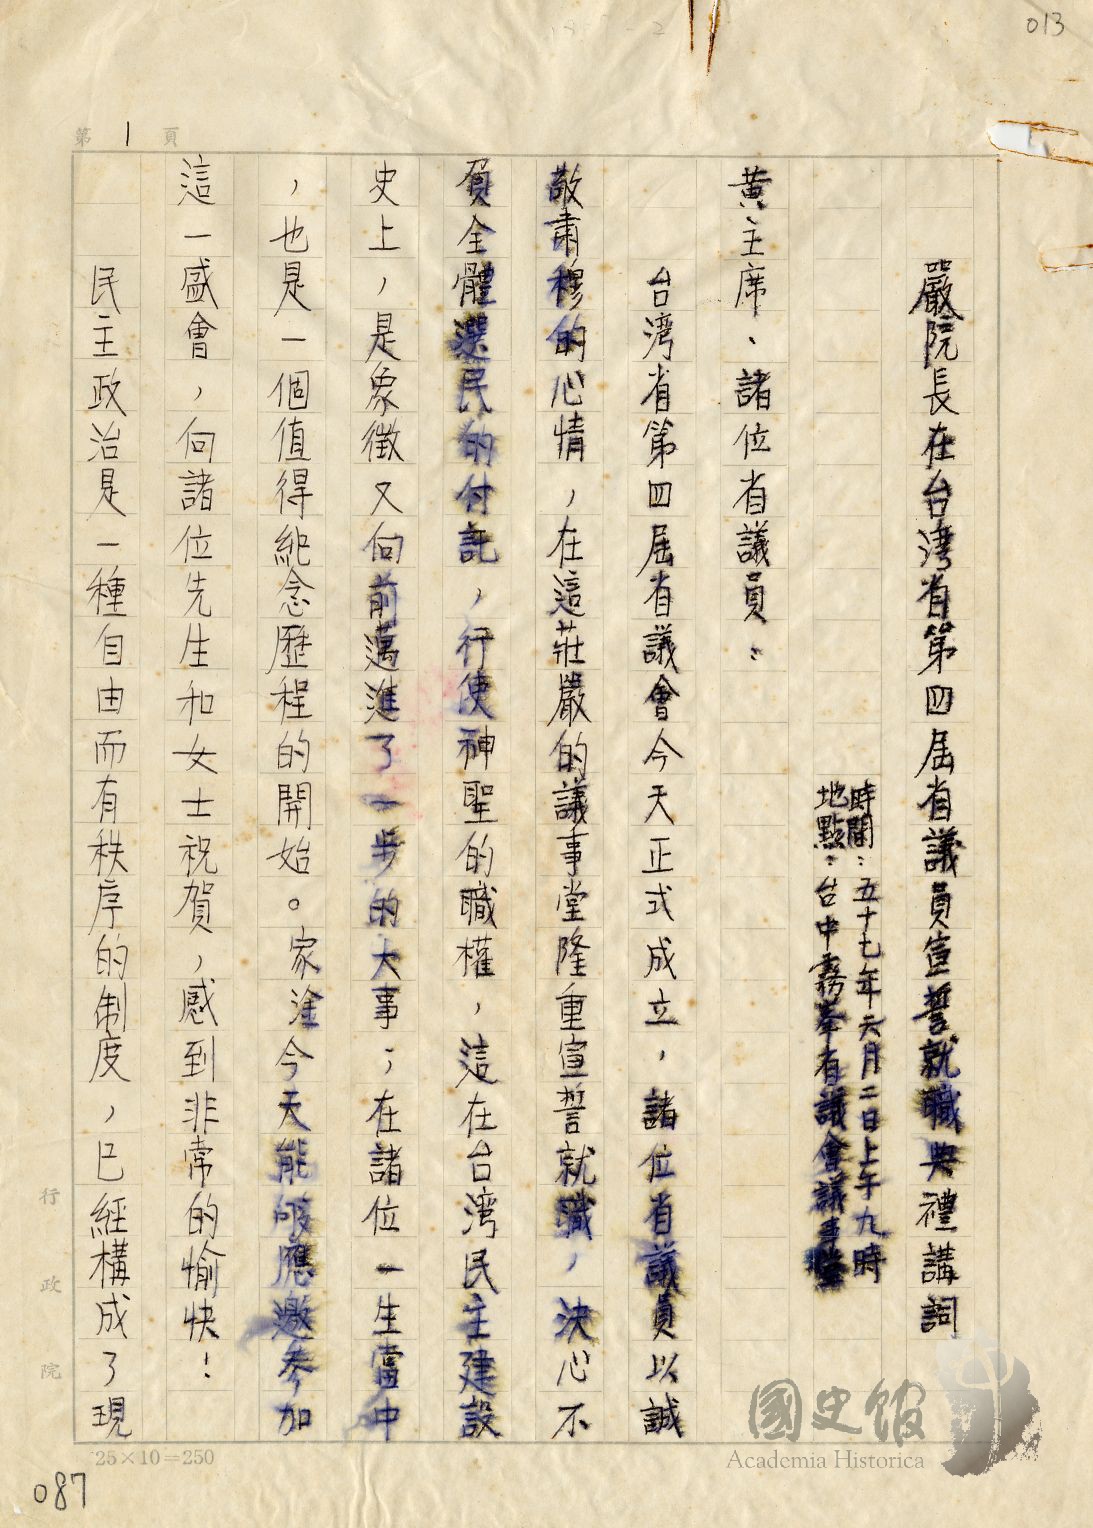 013
第1頁
嚴院長在台湾省第四屆省議員宣誓就職典禮講詞
時間：五十七年六月二日上午九時
地點：台中霧峯省議會議事堂
黃主席、諸位省議員：
台湾省第四屆省議會今天正式成立，諸位省議員以誠
敬肅穆的心情，在這莊嚴的議事堂隆重宣誓就職，決心不
負全體選民的付託，行使神聖的職權，這在台湾民主建設
史上，是象徵又向前邁進了一步的大事；在諸位一生當中
，也是一個值得紀念歷程的開始。家淦今天能够應邀參加
這一盛會，向諸位先生和女士祝賀，感到非常的愉快！
民主政治是一種自由而有秩序的制度，已經構成了現
行政院
25×10=250
087
國史館
Academia Historica